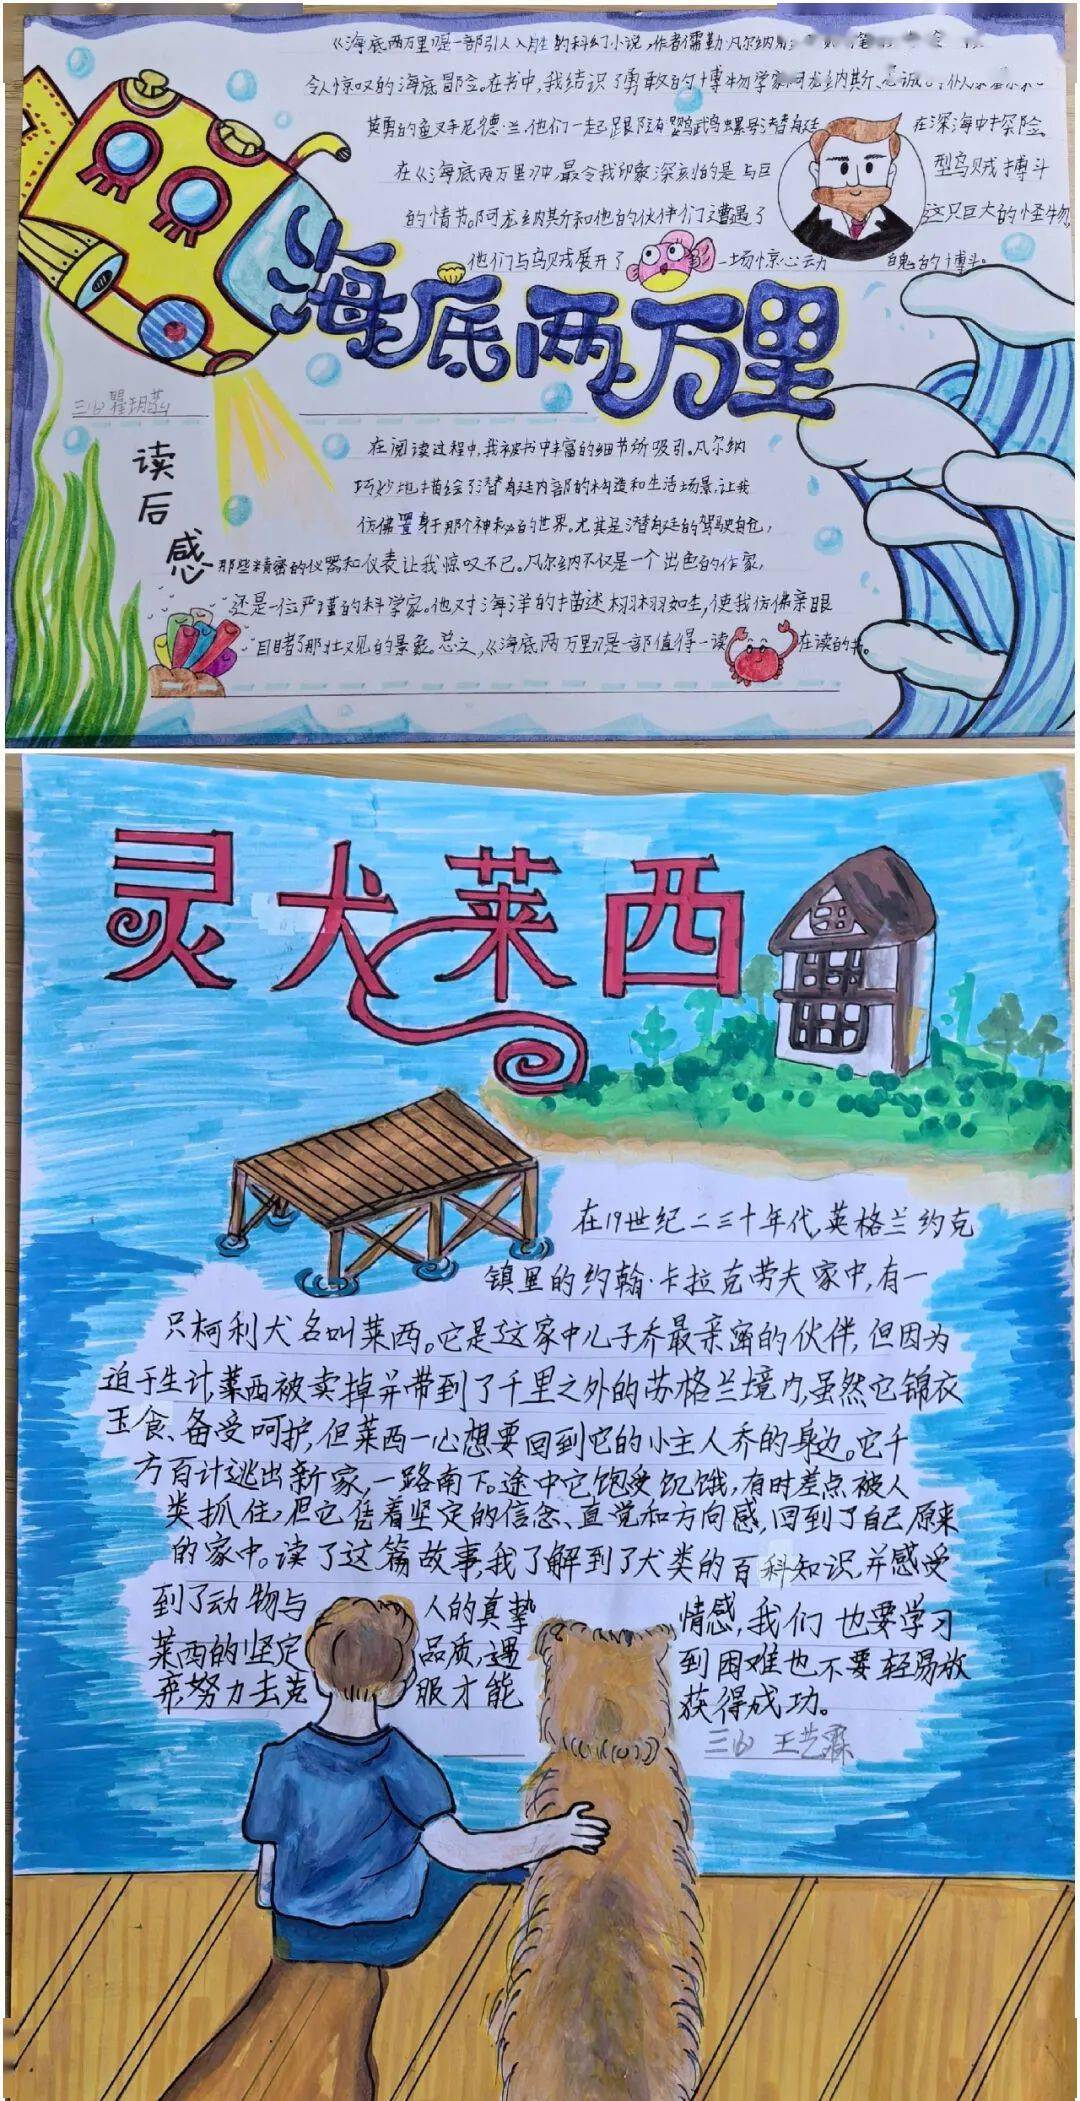 《海底两万里》是一部引人入胜的科幻小说,作者儒勒·凡尔纳
令人惊叹的海底冒险。在书中,我结识了勇敢的博物学家阿龙纳斯、忠诚
英勇的鱼叉手尼德·兰,他们一起跟随鹦鹉螺号潜艇在深海中探险
在《海底两万里》中,最令我印象深刻的是与巨型乌贼搏斗
的情节。阿龙纳斯和他的伙伴们遭遇了这只巨大的怪物,
他们与乌贼展开了一场惊心动魄的搏斗。
海底两万里
三(6)瞿玥
读后感
在阅读过程中,我被书中丰富的细节所吸引。凡尔纳
巧妙地描绘了潜艇内部的构造和生活场景,让我
仿佛置身于那个神秘的世界。尤其是潜艇的驾驶舱,
那些精密的仪器和仪表让我惊叹不已。凡尔纳不仅是一个出色的作家,
还是一位严谨的科学家。他对海洋的描述栩栩如生,使我仿佛亲眼
目睹了那壮观的景象。总之,《海底两万里》是一部值得一读在读的书。
灵犬莱西
在19世纪二三十年代,英格兰约克
镇里的约翰·卡拉克劳夫家中,有一
只柯利犬名叫莱西。它是这家中儿子乔最亲密的伙伴,但因为
迫于生计,莱西被卖掉并带到了千里之外的苏格兰境内,虽然它锦衣
玉食、备受呵护,但莱西一心想要回到它的小主人乔的身边。它千
方百计逃出新家,一路南下。途中它饱受饥饿,有时差点被人
类抓住,但它凭着坚定的信念、直觉和方向感,回到了自己原来
的家中。读了这篇故事,我了解到了犬类的百科知识,并感受
到了动物与人的真挚情感,我们也要学习
莱西的坚定品质,遇到困难也不要轻易放
弃,努力去克服才能获得成功。
三(6) 王艺霖